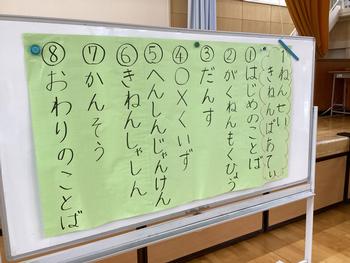 1ねんせい
きねんぱあてぃ
①はじめのことば
②がくねんもくひょう
③だんす
④○×くいず
⑤へんしんじゃんけん
⑥きねんしゃしん
⑦かんそう
⑧おわりのことば